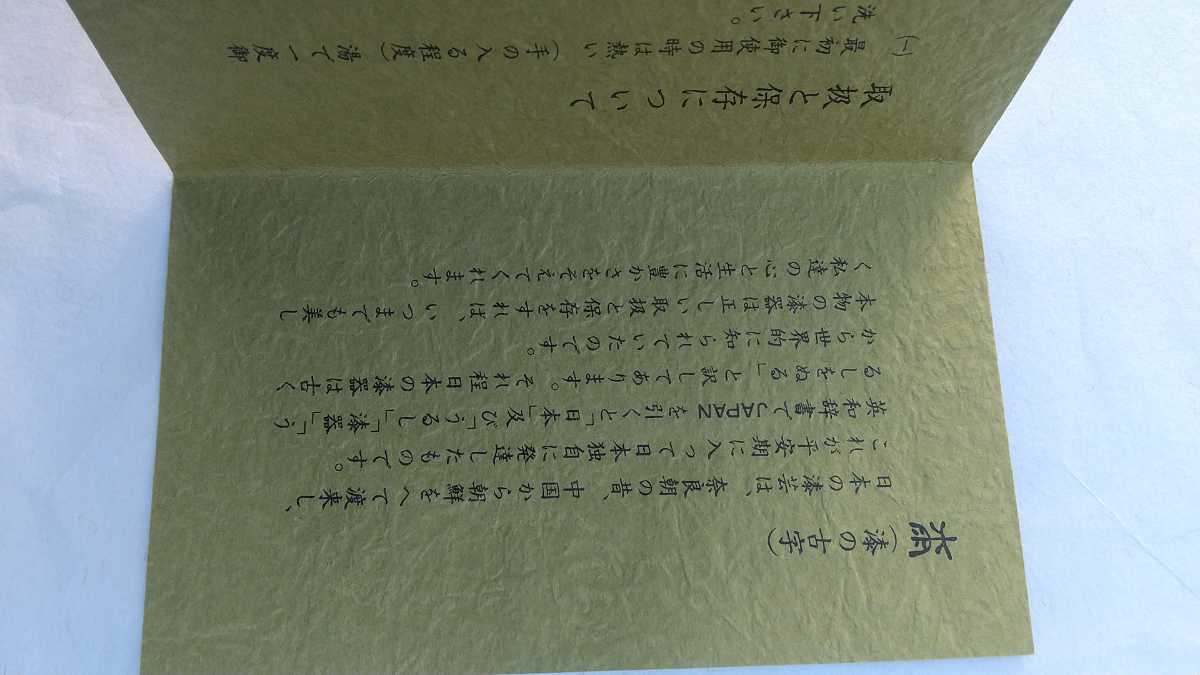 桼
(漆の古字)
日本の漆芸は、奈良朝の昔、中国から朝鮮をへて渡来し、
これが平安期に入って日本独自に発達したものです。
英和辞書でJAPANを引くと「日本」及び「うるし」「漆器」「う
るしをぬる」と訳してあります。それ程日本の漆器は古く
から世界的に知られていたのです。
本物の漆器は正しい取扱と保存をすれば、いつまでも美し
く私達の心と生活に豊かさをそえてくれます。
取扱と保存について
(一) 最初に御使用の時は熱い(手の入る程度)湯で一度御
洗い下さい。